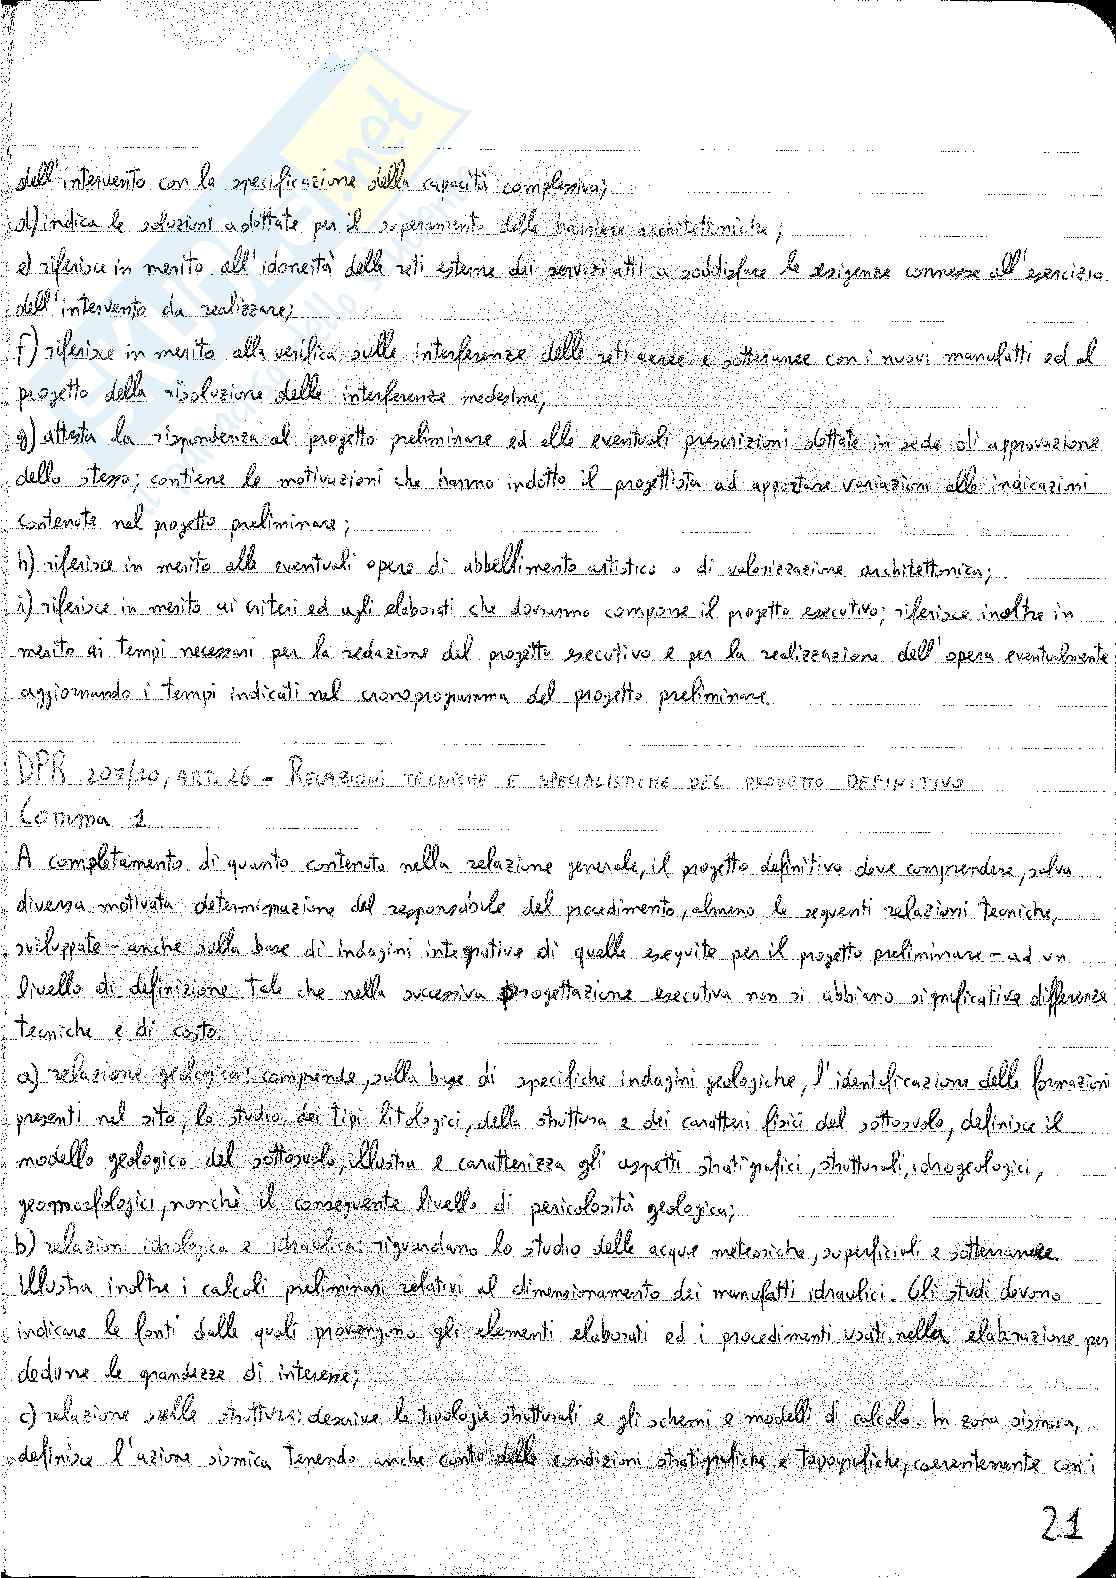 dell'intervento con la specificazione della capacità complessiva;
d) indica le soluzioni adottate per il superamento delle barriere architettoniche;
e) riferisce in merito all'idoneità delle reti esterne dei servizi atti a soddisfare le esigenze connesse all'esercizio
dell'intervento da realizzare;
f) riferisce in merito alla verifica sulle interferenze delle reti aeree e sotterranee con i nuovi manufatti ed al
progetto della risoluzione delle interferenze medesime;
g) attesta la rispondenza al progetto preliminare ed alle eventuali prescrizioni dettate in sede di approvazione
dello stesso; contiene le motivazioni che hanno indotto il progettista ad apportare variazioni alle indicazioni
contenute nel progetto preliminare;
h) riferisce in merito alle eventuali opere di abbellimento artistico o di valorizzazione architettonica;
i) riferisce in merito ai criteri ed agli elaborati che dovranno comporre il progetto esecutivo; riferisce inoltre in
merito ai tempi necessari per la redazione del progetto esecutivo e per la realizzazione dell'opera eventualmente
aggiornando i tempi indicati nel cronoprogramma del progetto preliminare.
DPR 207/10, ART. 26 - RELAZIONI TECNICHE E SPECIALISTICHE DEL PROGETTO DEFINITIVO
Comma 1
A completamento di quanto contenuto nella relazione generale, il progetto definitivo deve comprendere, salva
diversa motivata determinazione del responsabile del procedimento, almeno le seguenti relazioni tecniche,
sviluppate - anche sulla base di indagini integrative di quelle eseguite per il progetto preliminare - ad un
livello di definizione tale che nella successiva progettazione esecutiva non si abbiano significative differenze
tecniche e di costo.
a) relazione geologica: comprende, sulla base di specifiche indagini geologiche, l'identificazione delle formazioni
presenti nel sito, lo studio dei tipi litologici, della struttura e dei caratteri fisici del sottosuolo, definisce il
modello geologico del sottosuolo, illustra e caratterizza gli aspetti stratigrafici, strutturali, idrogeologici,
geomorfologici, nonchè il conseguente livello di pericolosità geologica;
b) relazioni idrologica e idraulica: riguardano lo studio delle acque meteoriche, superficiali e sotterranee.
Illustra inoltre i calcoli preliminari relativi al dimensionamento dei manufatti idraulici. Gli studi devono
indicare le fonti dalle quali provengono gli elementi elaborati ed i procedimenti usati nella elaborazione per
dedurre le grandezze di interesse;
c) relazione sulle strutture: descrive le tipologie strutturali e gli schemi e modelli di calcolo. In zona sismica,
definisce l'azione sismica tenendo anche conto delle condizioni stratigrafiche e topografiche, coerentemente con i
21